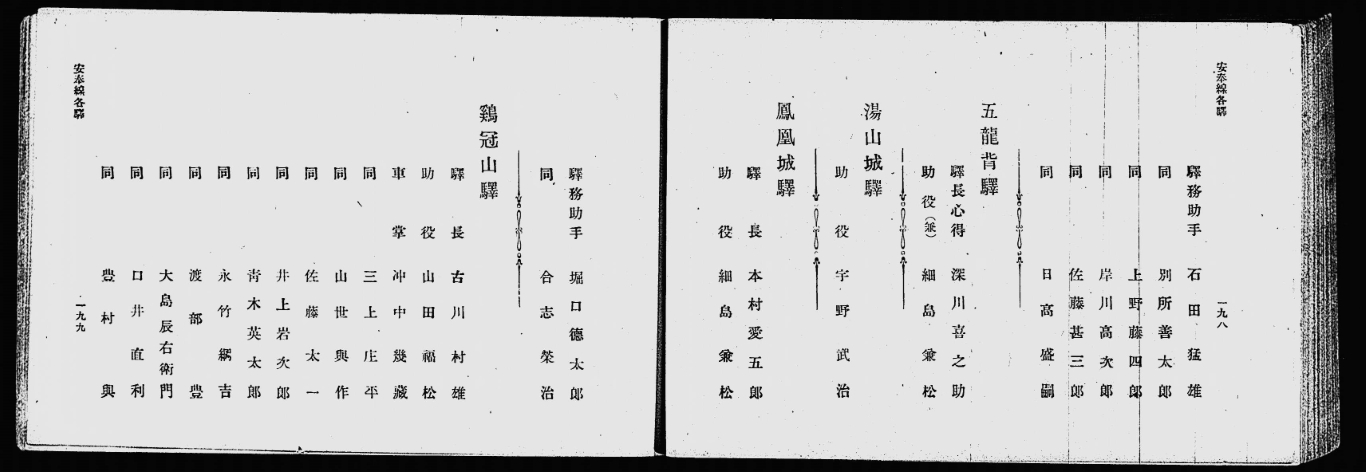 安奉線各驛
一九八
驛務助手 石田猛雄
同 別所善太郎
同 上野藤四郎
同 岸川高次郎
同 佐藤甚三郎
同 日高盛嗣
五龍背驛
驛長心得 深川喜之助
助役(兼) 細島兼松
湯山城驛
助役 宇野武治
鳳凰城驛
驛長 本村愛五郎
助役 細島兼松
驛務助手 堀口德太郎
同 合志榮治
鷄冠山驛
驛長 古川村雄
助役 山田福松
車掌 冲中幾藏
同 三上庄平
同 山世與作
同 佐藤太一
同 井上岩次郎
同 靑木英太郎
同 永竹綱吉
同 渡部豊
同 大島辰右衛門
同 口井直利
同 豊村與
安奉線各驛
一九九